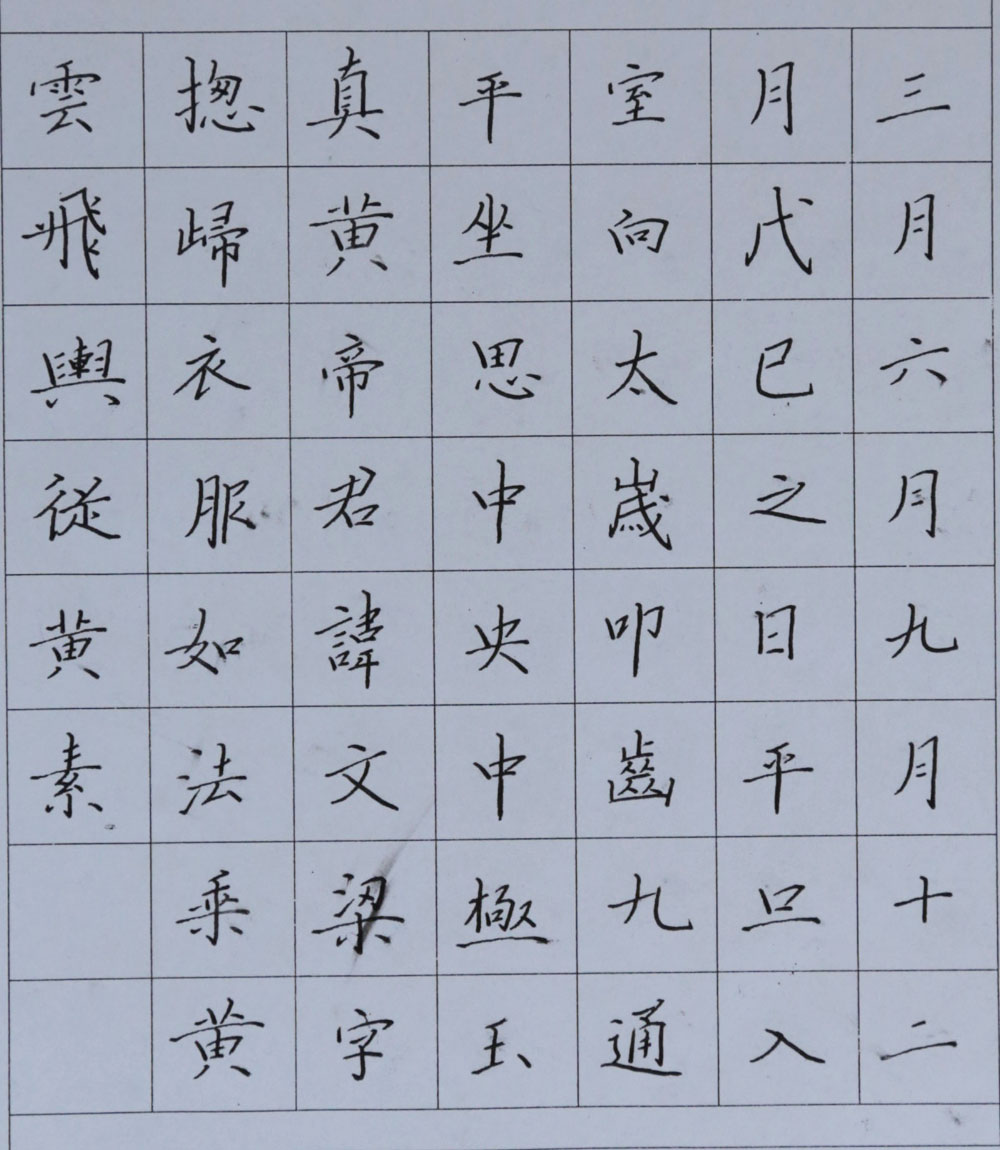 三月六月九月十二
月戊巳之日平旦入
室向太歲叩齒九通
平坐思中央中極玉
真黄帝君諱文梁字
揔歸衣服如法乗黄
雲飛輿從黄素